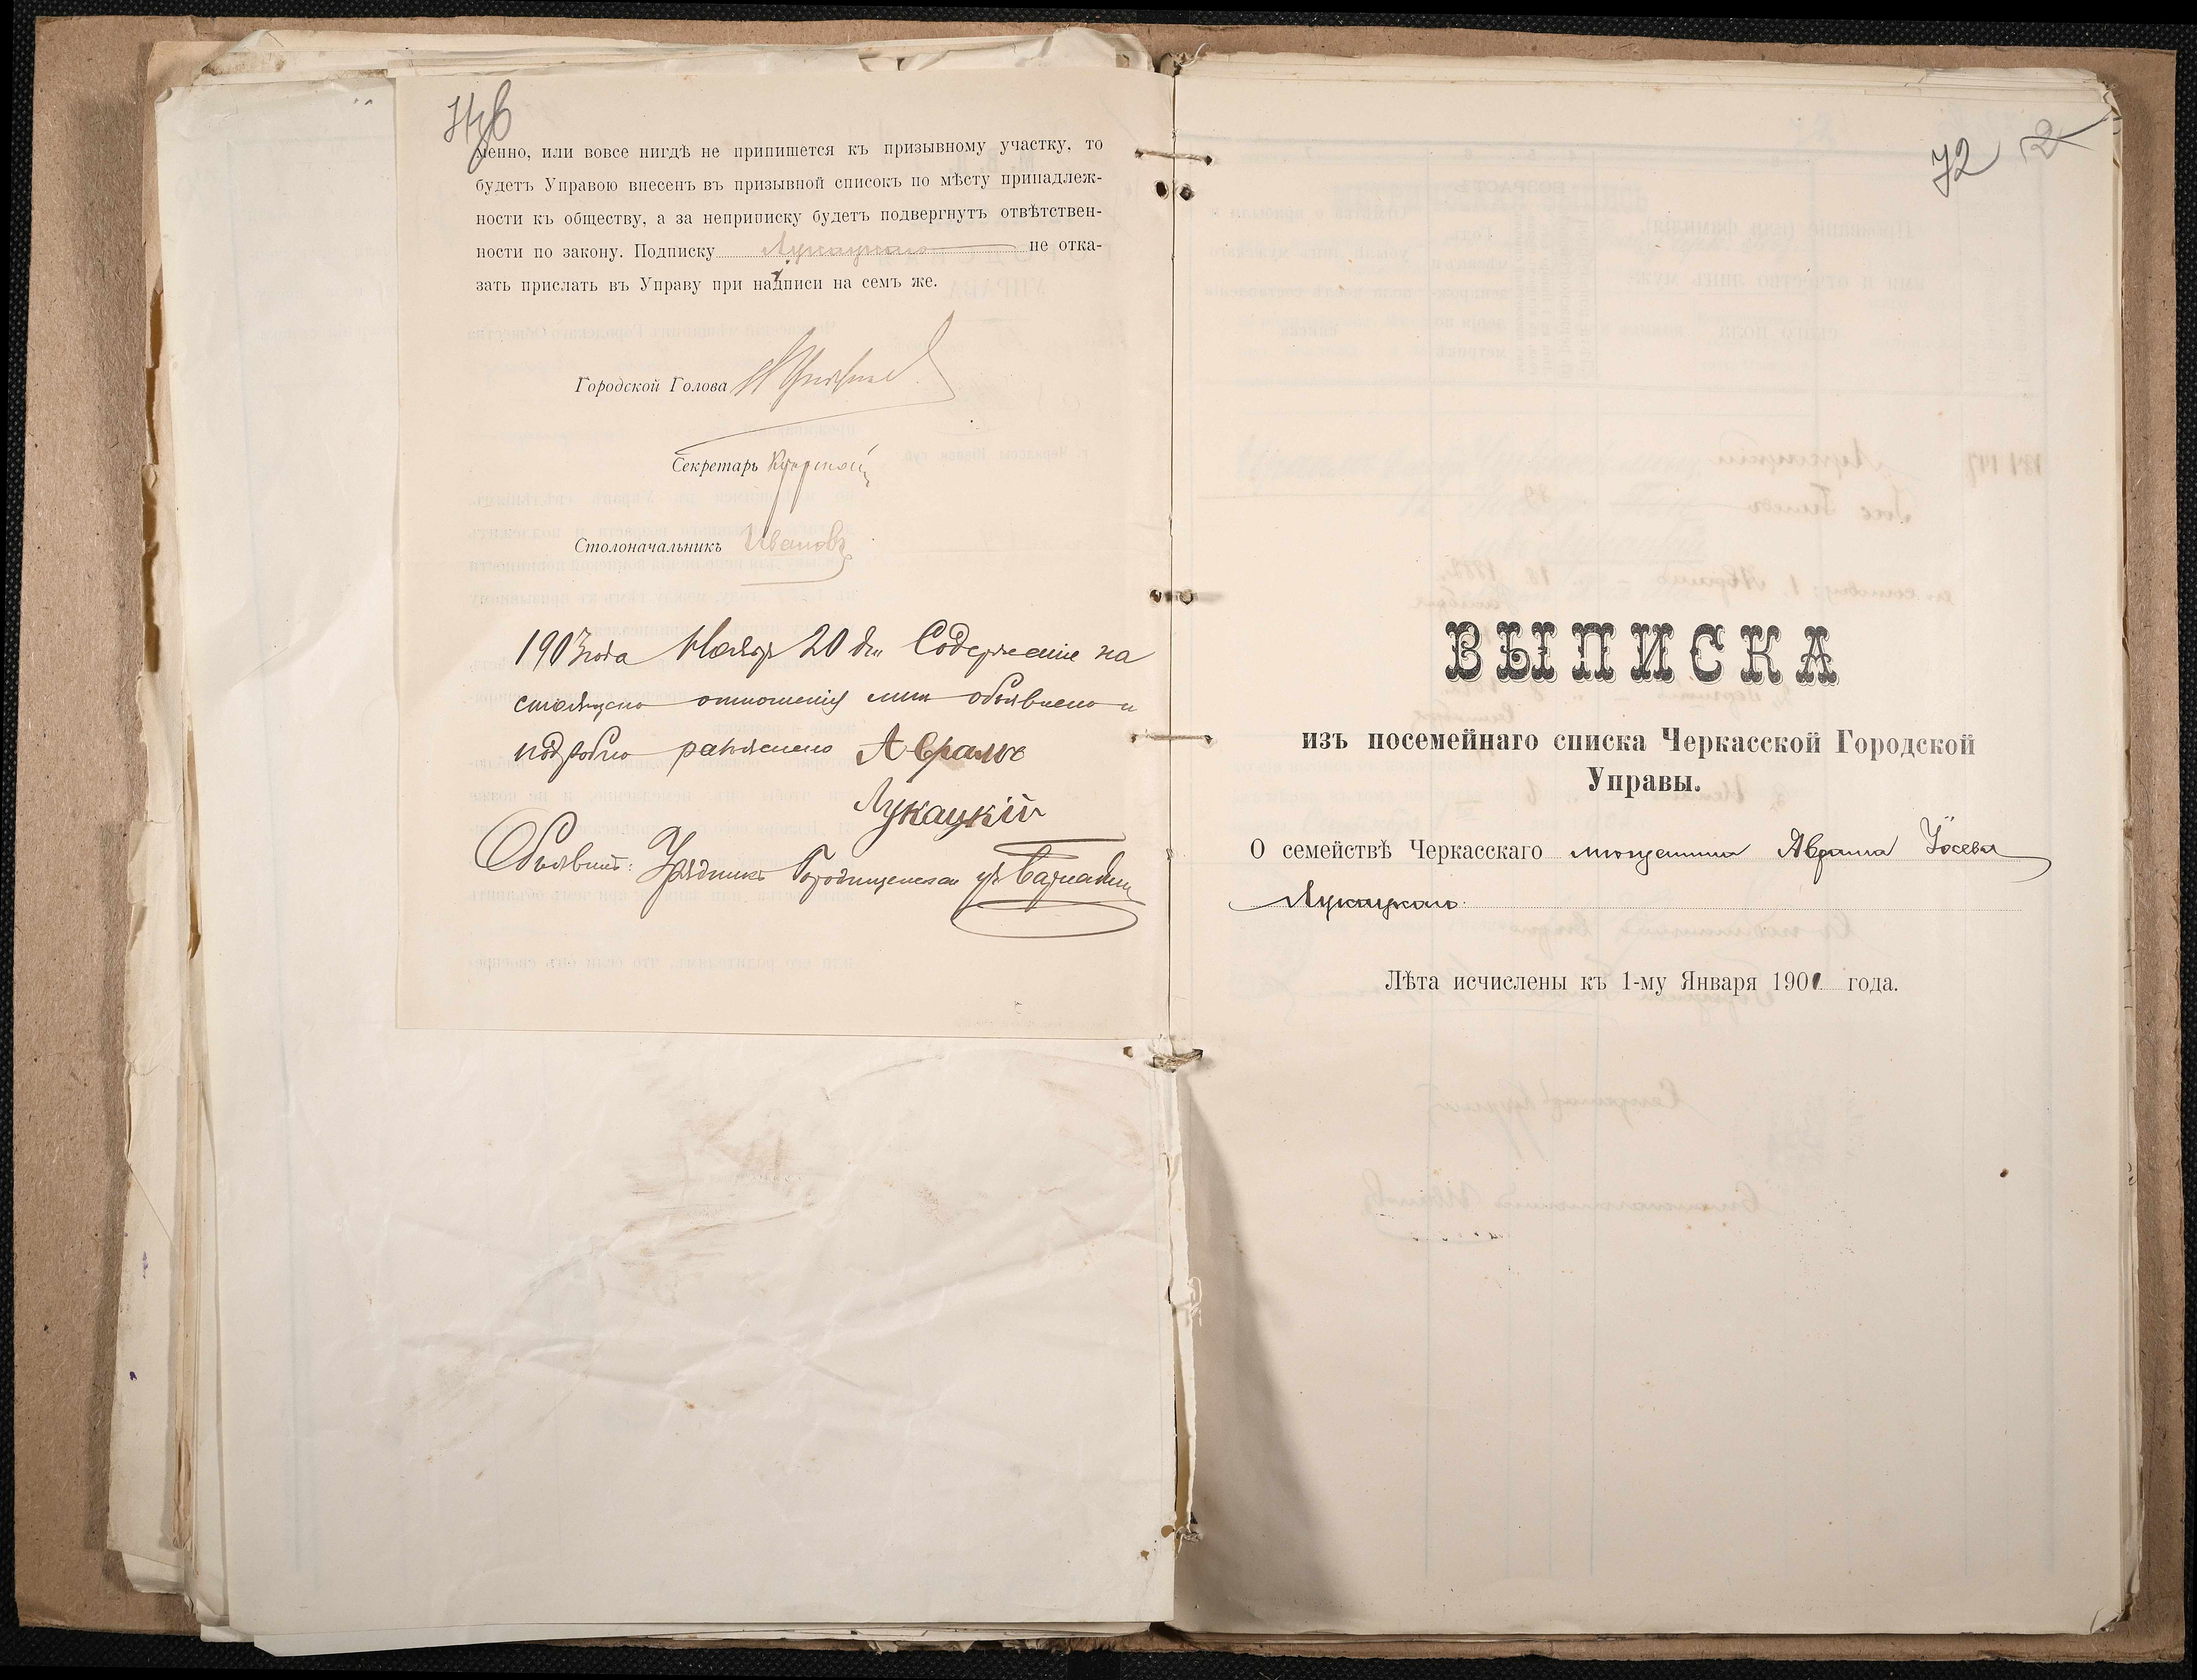 менно, или вовсе нигдѣ не припишется къ призывному участку, то
будетъ Управою внесенъ въ призывной списокъ по мѣсту принадлеж-
ности къ обществу, а за неприписку будетъ подвергнутъ отвѣтствен-
ности по закону. Подписку Лукацкаго не отка-
зать прислать въ Управу при надписи на семъ же.
Городской Голова
Секретарь
Столоначальникъ Ивановъ
1903 года Ноября 20 дн. Содержаніе на
стоящаго отношенія мнѣ объявлено и
подробно разъяснено Аврамъ
Лукацкій
Объявилъ: Урядникъ Городищенскаго уч.
72 2
ВЫПИСКА
изъ посемейнаго списка Черкасской Городской
Управы.
О семействѣ Черкасскаго мѣщанина Аврама Іосева
Лукацкаго.
Лѣта исчислены къ 1-му Января 1901 года.